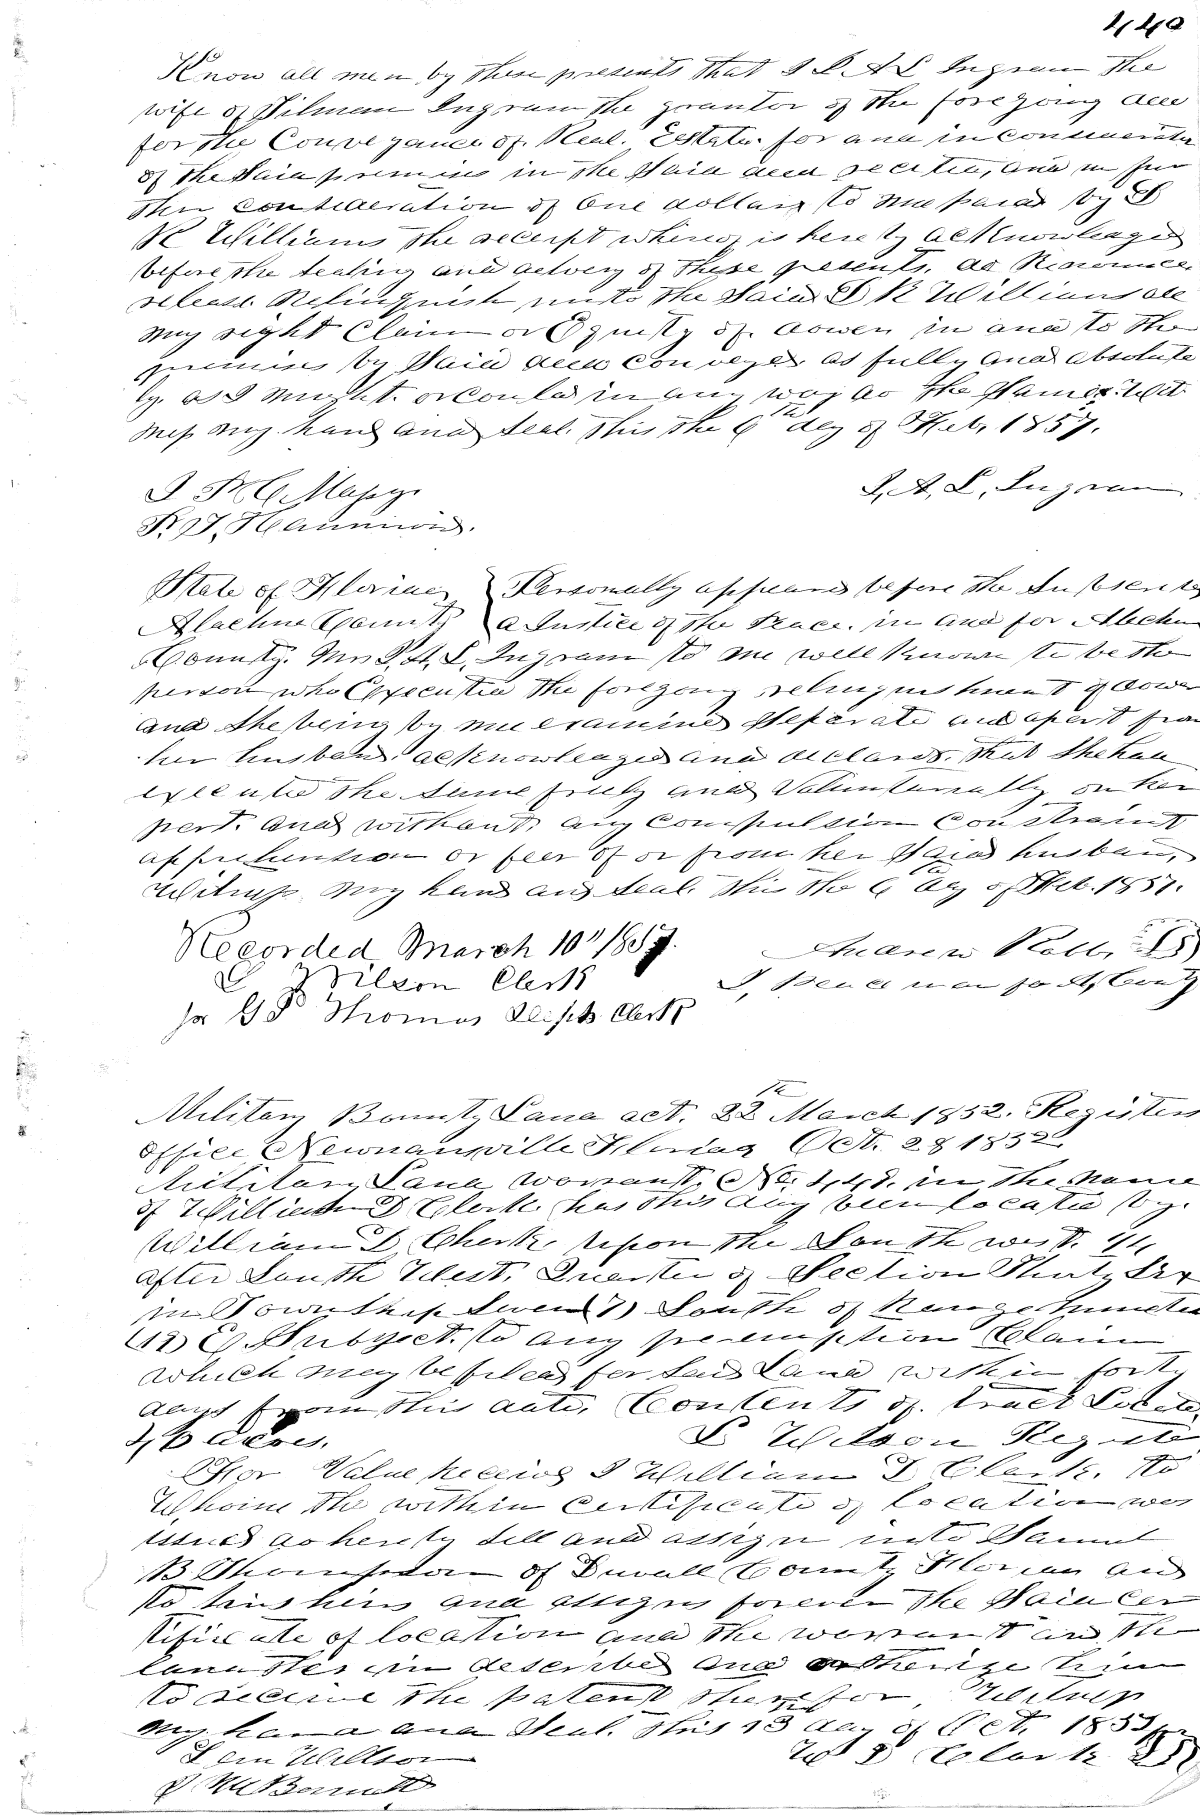 440
Know all men by these presents that I I. A. L Ingram the
wife of Tilman Ingram the grantor of the foregoing deed
for the Conveyance of Real. Estate. for and in consideratn
of the said premises in the said deed recited, and in fur
ther consideration of One dollar to me paid by D
R Williams the receipt whereof is hereby acknowledged
before the sealing and delivery of these presents. do Renounce.
release Relinquish unto the said D R Williams all
my right Claim or Equity of. dower in and to the
premises by said deed conveyed as fully and absolute
ly. as I might. or could in any way do the same. Wit
ness my hand and seal. this the 6th day of Feb. 1857.
I. A. L. Ingram
State of Florida Personally appeared before the Subscriber
Alachua County a Justice of the Peace. in and for Alachua
County. Mrs I. A. L. Ingram to me well known to be the
person who Executed the foregoing relinquishment of dower
and she being by me examined seperate and apart from
her husband. acknowledged and declared. that she had
executed the same freely and Voluntarially on her
part. and without any compulsion constraint
apprehention or feer of or from her said husband,
Witness my hand and seal. this the 6th day of Feb. 1857.
Recorded March 10" 1857. Andrew
L Wilson Clerk
for G P Thomas Clerk
Military Bounty Land act. 22th March 1852. Registers
office Newnansville Florida Oct. 28 1852
Military Land warrant. No. 448. in the name
of William D Clerk. has this day been located by.
William D Cherk. upon the South west. 1/4
after South West. Quarter of Section Thirty Six
in Township Seven (7) South of Range Nineteen
(19) E. Subject. to any pre-emption Claim
which may be filed for said Land within forty
days from this date. Contents of. tract Located
40 acres. L Wilson Register
For Value Received I William D Clark. to
Whome the within certificate of location was
issued do hereby sell and assign unto Samuel
B Thompson of Duvall County Florida and
to his heirs and assigns forever the said cer
tificate of location and the warrant and the
land therein described and otherize him
to receive the patent therefor, Witness
my hand and Seal. this 13 day of Oct. 1853
Sam Willson W D Clark